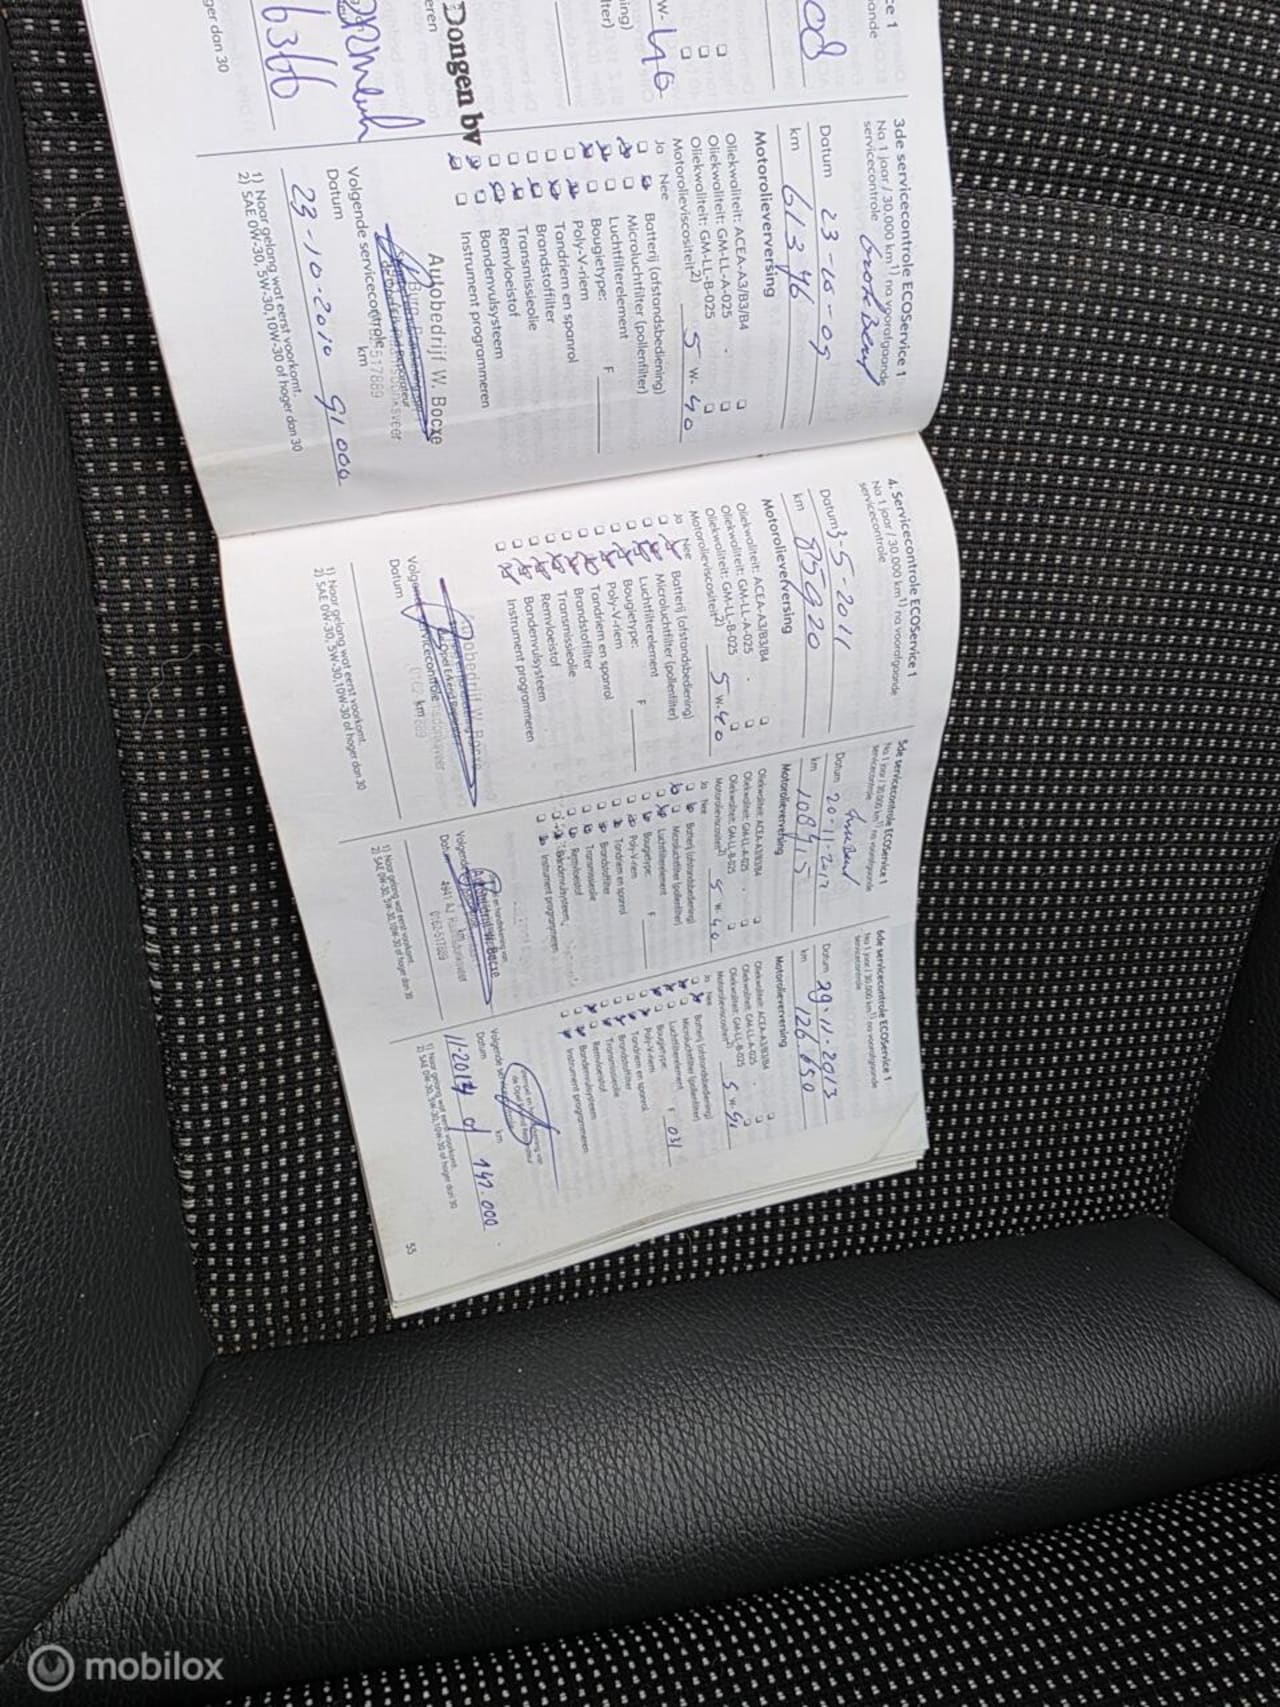 ce 1
aande
08
W- 40
Dongen bv
eren
6366
ger dan 30
3de servicecontrole ECOService 1
Na 1 jaar / 30.000 km1) na voorafgaande
servicecontrole
Groot Beurt
Datum 23-10-09
km 61376
Motorolieverversing
Oliekwaliteit: ACEA-A3/B3/B4
Oliekwaliteit: GM-LL-A-025
Oliekwaliteit: GM-LL-B-025
Motorolieviscositeit2) 5 W- 40
Ja Nee
Batterij (afstandsbediening)
Microluchtfilter (pollenfilter)
Luchtfilterelement
Bougietype: F
Poly-V-riem
Tandriem en spanrol
Brandstoffilter
Transmissieolie
Remvloeistof
Bandenvulsysteem
Instrument programmeren
Autobedrijf W. Bocxe
Volgende servicecontrole
Datum km
23-10-2010 91000
1) Naar gelang wat eerst voorkomt.
2) SAE 0W-30, 5W-30,10W-30 of hoger dan 30
4. Servicecontrole ECOService 1
Na 1 jaar / 30.000 km1) na voorafgaande
servicecontrole
Datum 3-5-2011
km 85920
Motorolieverversing
Oliekwaliteit: ACEA-A3/B3/B4
Oliekwaliteit: GM-LL-A-025
Oliekwaliteit: GM-LL-B-025
Motorolieviscositeit2) 5 W- 40
Ja Nee
Batterij (afstandsbediening)
Microluchtfilter (pollenfilter)
Luchtfilterelement
Bougietype: F
Poly-V-riem
Tandriem en spanrol
Brandstoffilter
Transmissieolie
Remvloeistof
Bandenvulsysteem
Instrument programmeren
Autobedrijf W. Bocxe
Volgende servicecontrole
Datum km
1) Naar gelang wat eerst voorkomt.
2) SAE 0W-30, 5W-30,10W-30 of hoger dan 30
5de servicecontrole ECOService 1
Na 1 jaar / 30.000 km1) na voorafgaande
servicecontrole
Datum 20-11-2012
km 108415
Motorolieverversing
Oliekwaliteit: ACEA-A3/B3/B4
Oliekwaliteit: GM-LL-A-025
Oliekwaliteit: GM-LL-B-025
Motorolieviscositeit2) 5 W- 40
Ja Nee
Batterij (afstandsbediening)
Microluchtfilter (pollenfilter)
Luchtfilterelement
Bougietype: F
Poly-V-riem
Tandriem en spanrol
Brandstoffilter
Transmissieolie
Remvloeistof
Bandenvulsysteem
Instrument programmeren
Autobedrijf W. Bocxe
0162-517889
Datum km
1) Naar gelang wat eerst voorkomt.
2) SAE 0W-30, 5W-30,10W-30 of hoger dan 30
6de servicecontrole ECOService 1
Na 1 jaar / 30.000 km1) na voorafgaande
servicecontrole
Datum 29-11-2013
km 126.650
Motorolieverversing
Oliekwaliteit: ACEA-A3/B3/B4
Oliekwaliteit: GM-LL-A-025
Oliekwaliteit: GM-LL-B-025
Motorolieviscositeit2) 5 W-
Ja Nee
Batterij (afstandsbediening)
Microluchtfilter (pollenfilter)
Luchtfilterelement
Bougietype: F 031
Poly-V-riem
Tandriem en spanrol
Brandstoffilter
Transmissieolie
Remvloeistof
Bandenvulsysteem
Instrument programmeren
Volgende
Datum km
11-2014 of 147.000
1) Naar gelang wat eerst voorkomt.
2) SAE 0W-30, 5W-30,10W-30 of hoger dan 30
55
mobilox